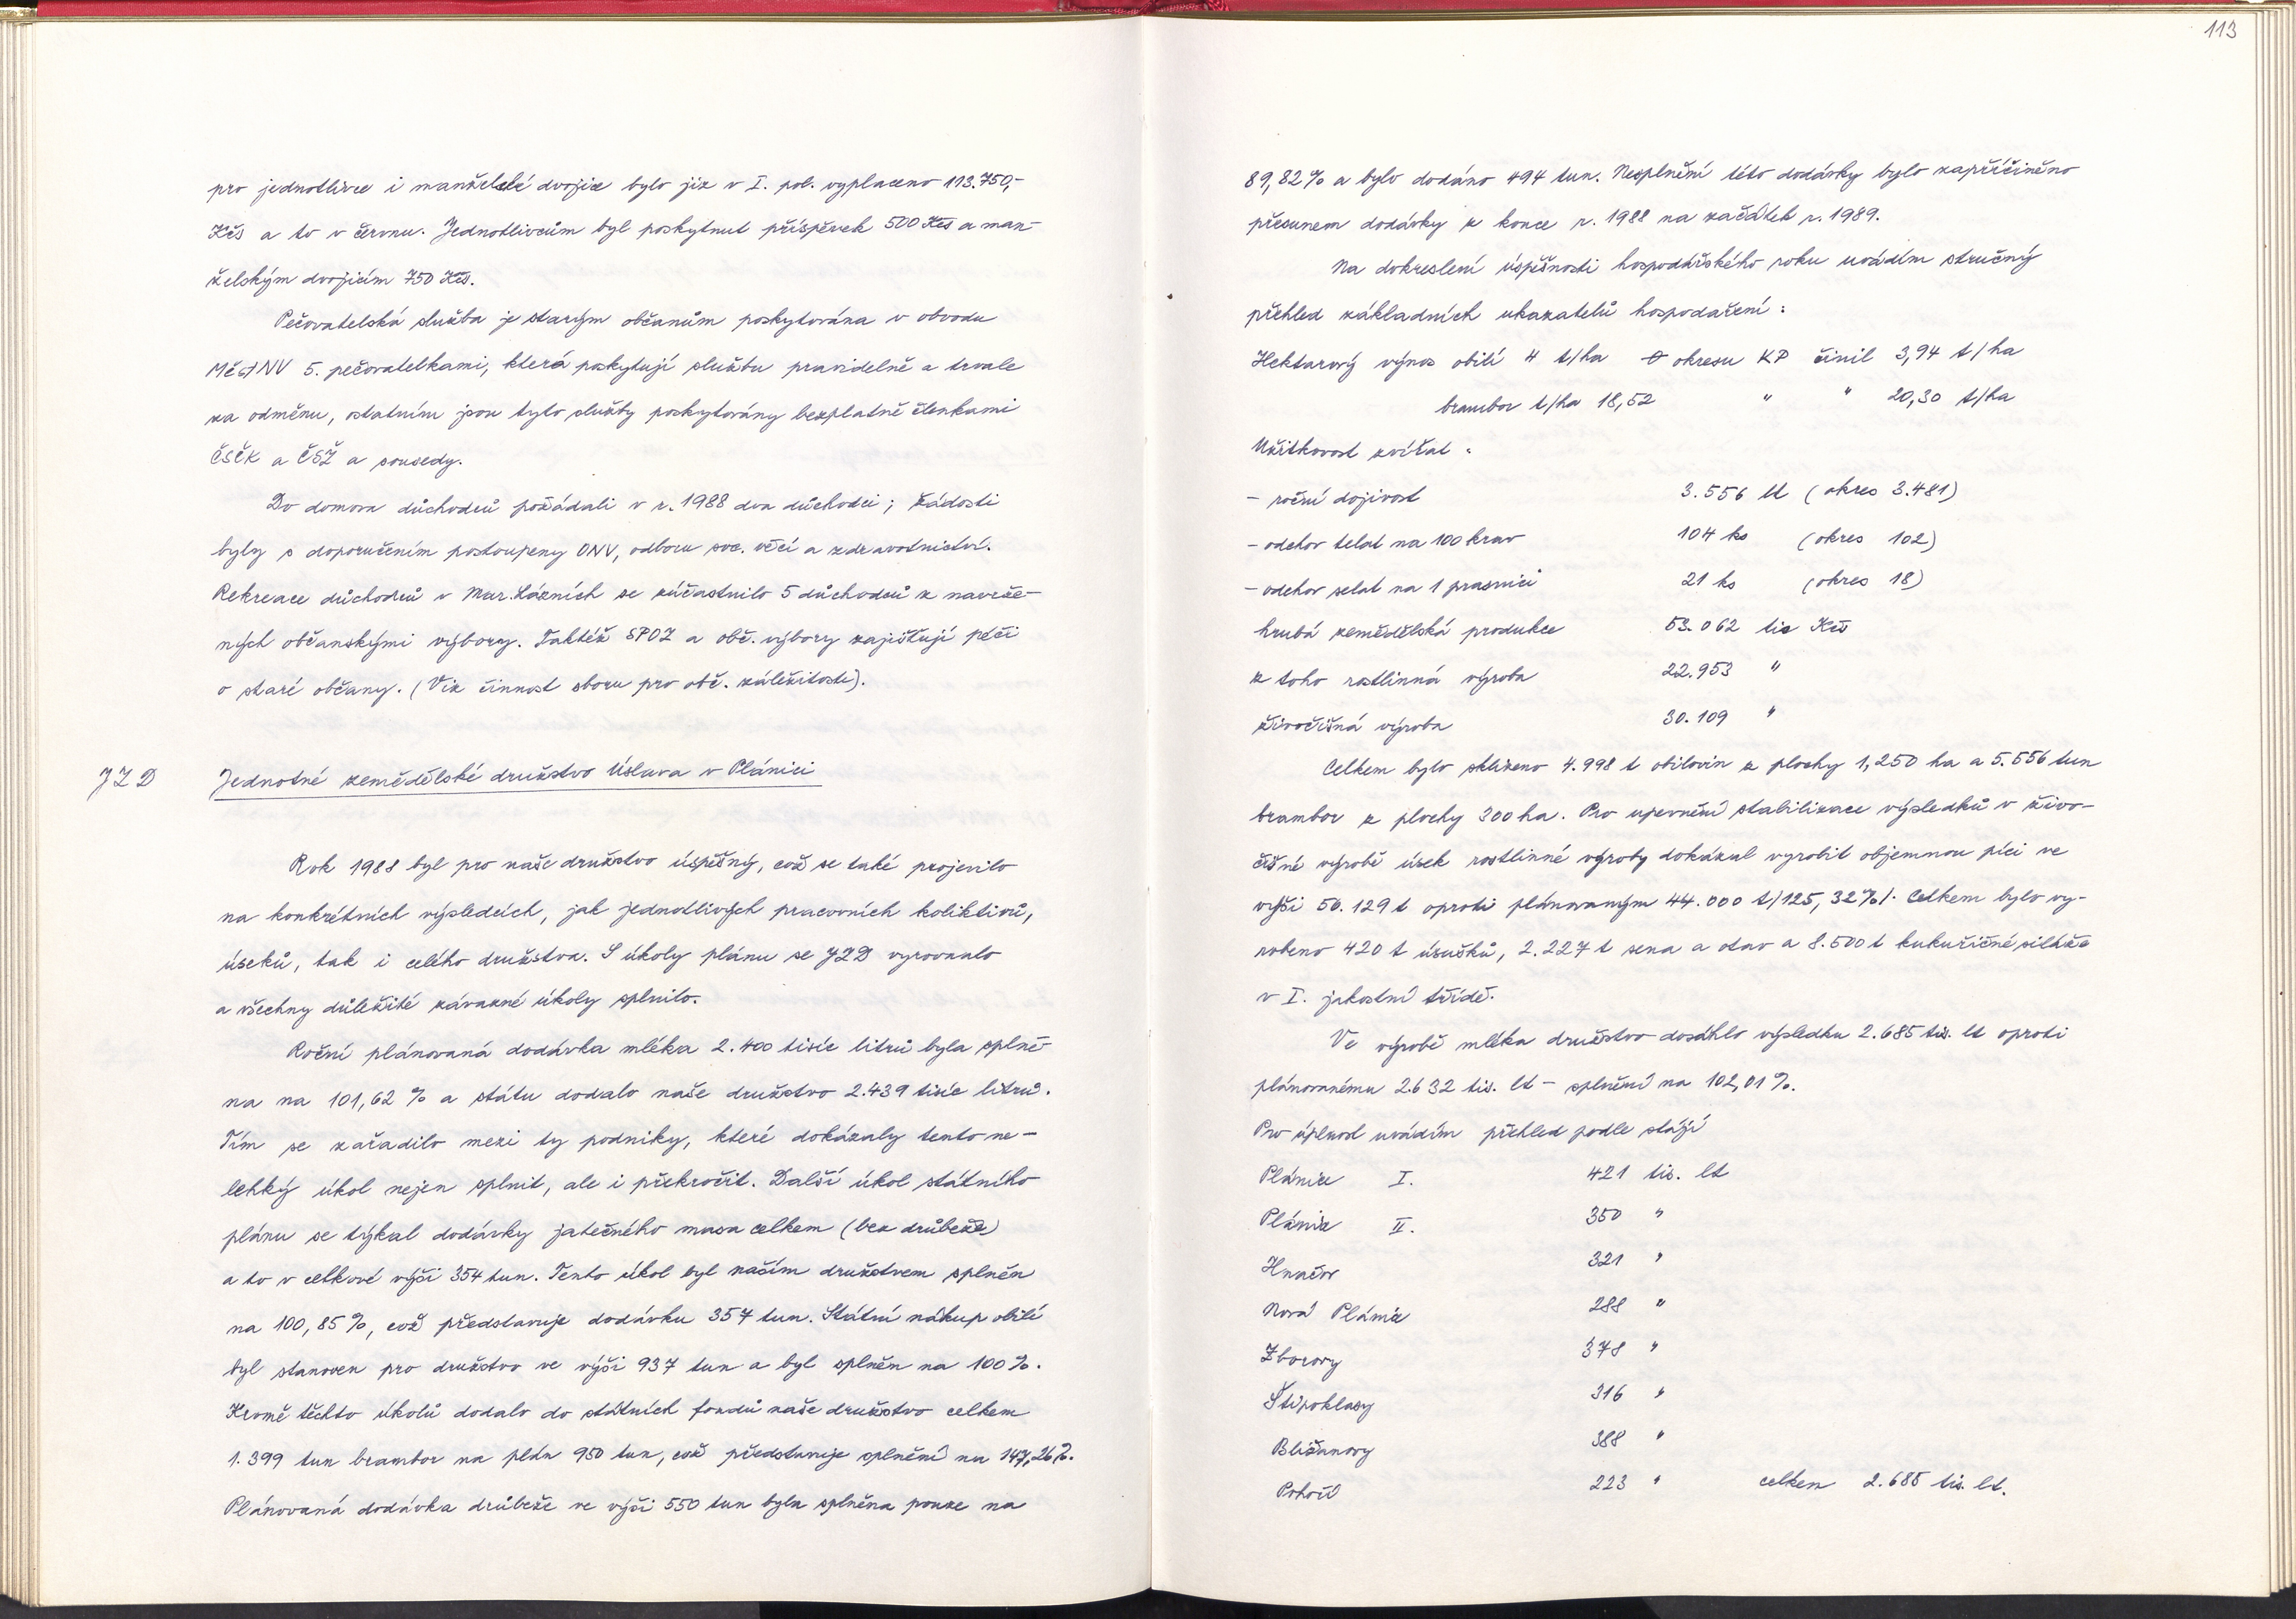 pro jednotlivce i manželské dvojice bylo již v I. pol. vyplaceno 113.750,-
Kčs a to v červnu. Jednotlivcům byl poskytnut příspěvek 500 Kčs a man-
želským dvojicím 750 Kčs.
Pečovatelská služba je starým občanům poskytována v obvodu
MěstNV 5. pečovatelkami, která poskytují službu pravidelně a trvale
za odměnu, ostatním jsou tyto služby poskytovány bezplatně členkami
ČSČK a ČSŽ a sousedy.
Do domova důchodců požádali v r. 1988 dva důchodci; žádosti
byly s doporučením postoupeny ONV, odboru soc. věcí a zdravotnictví.
Rekreace důchodců v Mar. Lázních se zúčastnilo 5 důchodců z navrže-
ných občanskými výbory. Taktéž SPOZ a obč. výbory zajišťují péči
o staré občany. (Viz činnost sboru pro obč. záležitosti).
JZD
Jednotné zemědělské družstvo Úslava v Plánici
Rok 1988 byl pro naše družstvo úspěšný, což se také projevilo
na konkrétních výsledcích, jak jednotlivých pracovních kolektivů,
úseků, tak i celého družstva. S úkoly plánu se JZD vyrovnalo
a všechny důležité závazné úkoly splnilo.
Roční plánovaná dodávka mléka 2.400 tisíc litrů byla splně-
na na 101,62 % a státu dodalo naše družstvo 2.439 tisíc litrů.
Tím se zařadilo mezi ty podniky, které dokázaly tento ne-
lehký úkol nejen splnit, ale i překročit. Další úkol státního
plánu se týkal dodávky jatečného masa celkem (bez drůbeže)
a to v celkové výši 354 tun. Tento úkol byl naším družstvem splněn
na 100,85 %, což představuje dodávku 357 tun. Státní nákup obilí
byl stanoven pro družstvo ve výši 937 tun a byl splněn na 100 %.
Kromě těchto úkolů dodalo do státních fondů naše družstvo celkem
1.399 tun brambor na plán 950 tun, což představuje splnění na 147,26 %.
Plánovaná dodávka drůbeže ve výši 550 tun byla splněna pouze na
113
89,82 % a bylo dodáno 494 tun. Nesplnění této dodávky bylo zapříčiněno
přesunem dodávky z konce r. 1988 na začátek r. 1989.
Na dokreslení úspěšnosti hospodářského roku uvádím stručný
přehled základních ukazatelů hospodaření :
Hektarový výnos obilí 4 t/ha Ø okresu KP činil 3,94 t/ha
brambor t/ha 18,52 " " 20,30 t/ha
Užitkovost zvířat :
- roční dojivost 3.556 lt (okres 3.481)
- odchov telat na 100 krav 104 ks (okres 102)
- odchov selat na 1 prasnici 21 ks (okres 18)
hrubá zemědělská produkce 53.062 tis Kčs
z toho rostlinná výroba 22.953 "
živočišná výroba 30.109 "
Celkem bylo sklizeno 4.998 t obilovin z plochy 1,250 ha a 5.556 tun
brambor z plochy 300 ha. Pro upevnění stabilizace výsledků v živo-
čišné výrobě úsek rostlinné výroby dokázal vyrobit objemnou píci ve
výši 56.129 t oproti plánovaným 44.000 t/125,32%/. Celkem bylo vy-
robeno 420 t úsušků, 2.227 t sena a otav a 8.500 t kukuřičné siláže
v I. jakostní třídě.
Ve výrobě mléka družstvo dosáhlo výsledku 2.685 tis. lt oproti
plánovanému 2.632 tis. lt - splnění na 102,01 %.
Pro úplnost uvádím přehled podle stájí
Plánice I. 421 tis. lt
Plánice II. 350 "
Hnačov 321 "
Nová Plánice 288 "
Zborovy 378 "
Štipoklasy 316 "
Bližanovy 388 "
Pohoří 223 " celkem 2.685 tis. lt.